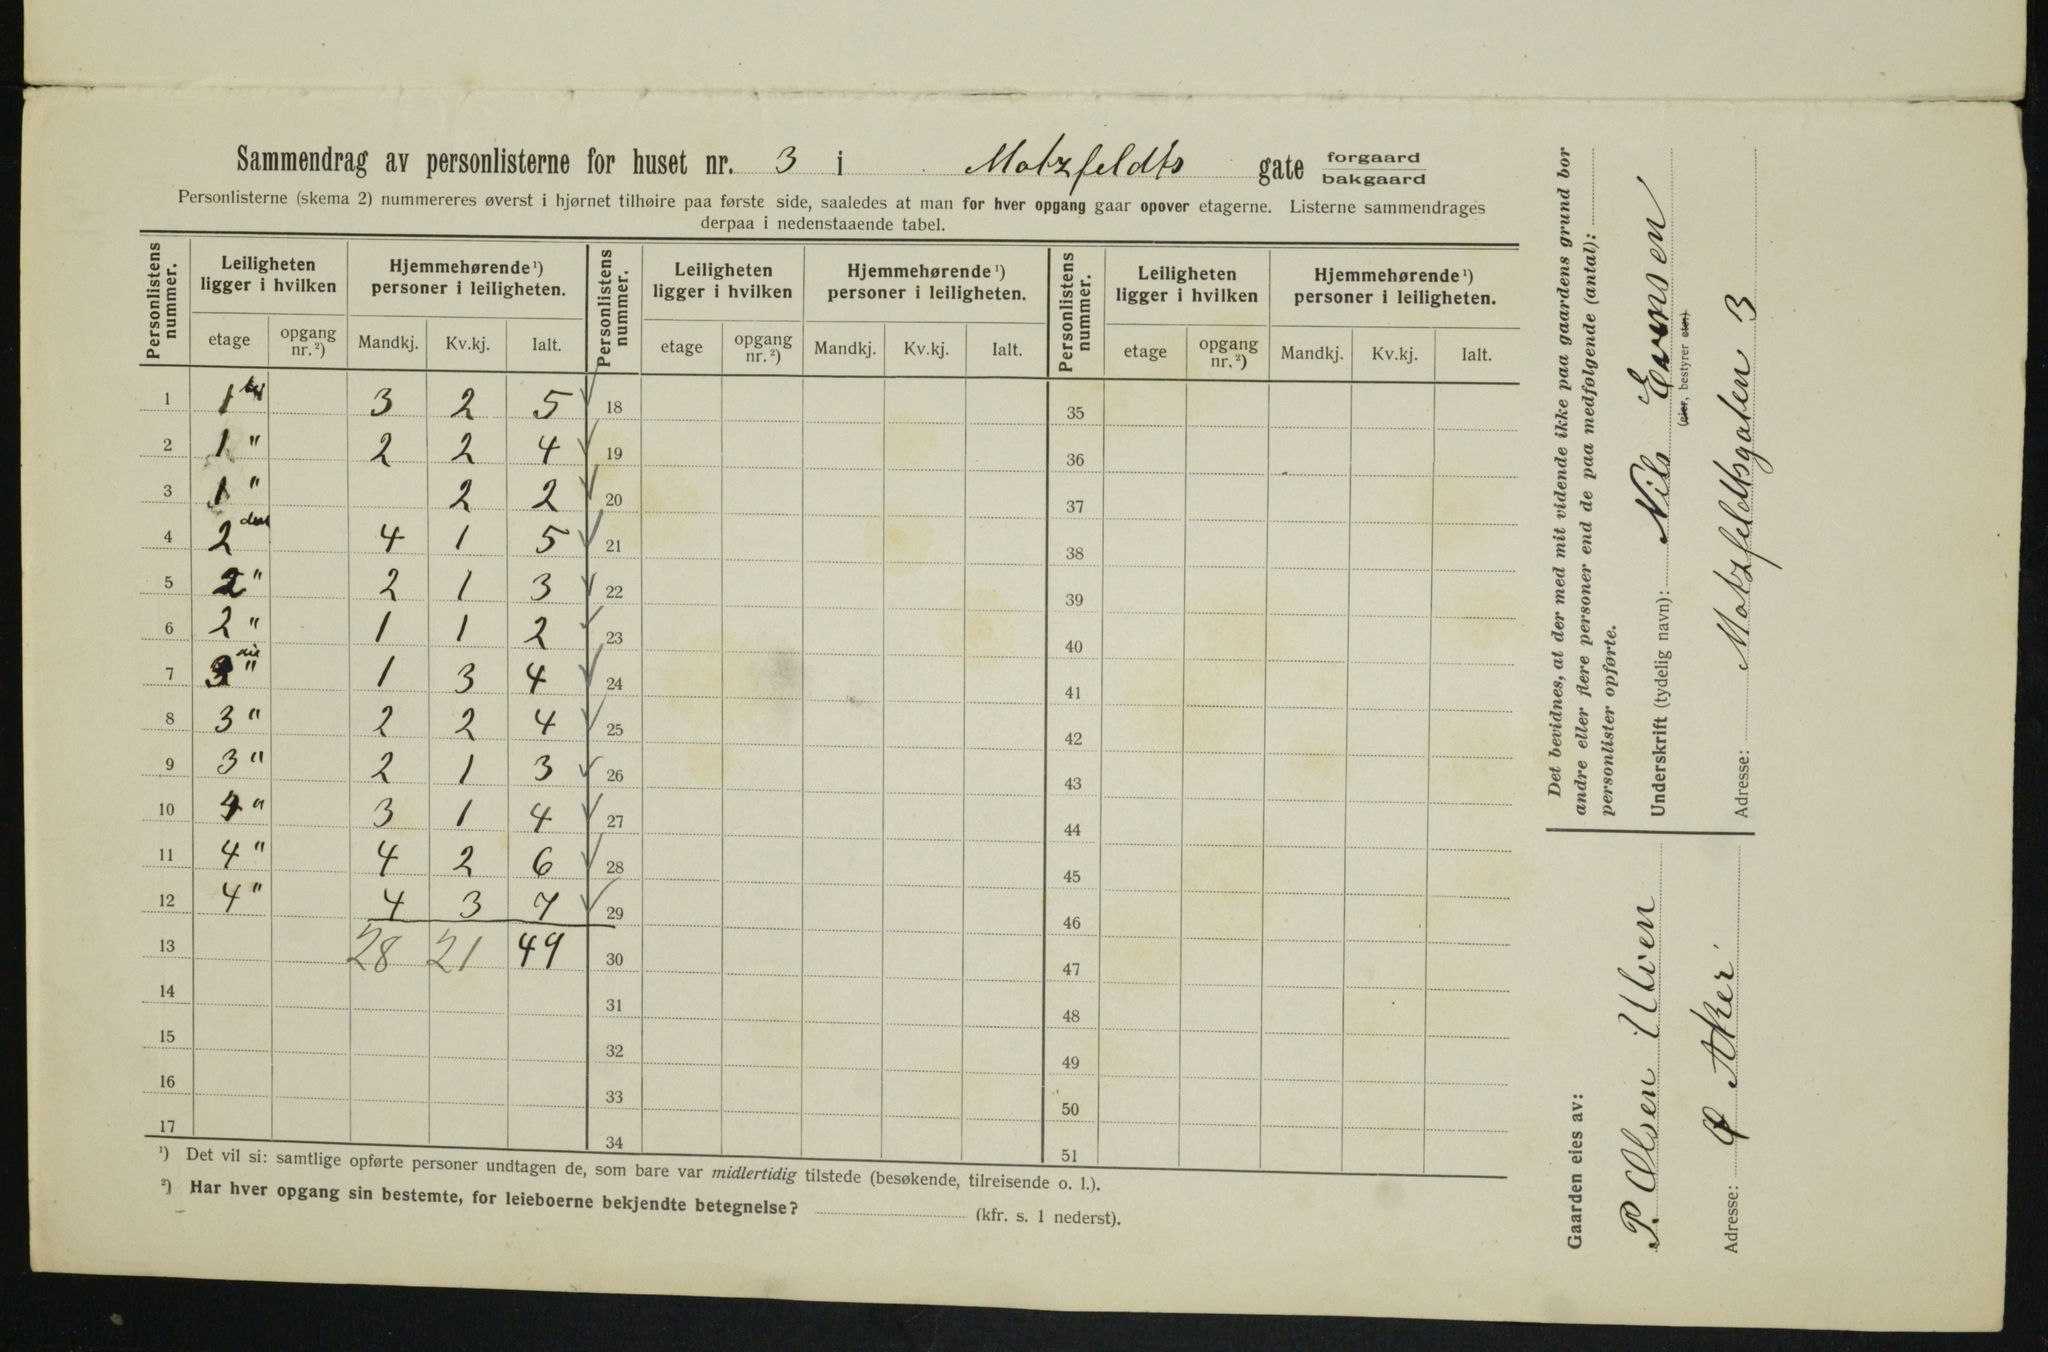 Sammendrag av personlisterne for huset nr. 3 i Motzfeldts gate forgaard bakgaard
Personlisterne (skema 2) nummereres øverst i hjørnet tilhøire paa første side, saaledes at man for hver opgang gaar opover etagerne. Listerne sammendrages
derpaa i nedenstaaende tabel.
Personlistens nummer. Leiligheten ligger i hvilken Hjemmehørende ¹) personer i leiligheten. Personlistens nummer. Leiligheten ligger i hvilken Hjemmehørende ¹) personer i leiligheten. Personlistens nummer. Leiligheten ligger i hvilken Hjemmehørende ¹) personer i leiligheten.
etage opgang nr. ²) Mandkj. Kv.kj. Ialt. etage opgang nr. ²) Mandkj. Kv.kj. Ialt. etage opgang nr. ²) Mandkj. Kv.kj. Ialt.
1 1 3 2 5 18 35
2 1 " 2 2 4 19 36
3 1 " 2 2 20 37
4 2 den 4 1 5 21 38
5 2 " 2 1 3 22 39
6 2 " 1 1 2 23 40
7 3 " 1 3 4 24 41
8 3 " 2 2 4 25 42
9 3 " 2 1 3 26 43
10 4 " 3 1 4 27 44
11 4 " 4 2 6 28 45
12 4 " 4 3 7 29 46
13 28 21 49 30 47
14 31 48
15 32 49
16 33 50
17 34 51
¹) Det vil si: samtlige opførte personer undtagen de, som bare var midlertidig tilstede (besøkende, tilreisende o. l.).
²) Har hver opgang sin bestemte, for leieboerne bekjendte betegnelse? (kfr. s. 1 nederst).
Det bevidnes, at der med mit vidende ikke paa gaardens grund bor
andre eller flere personer end de paa medfølgende (antal):
personlister opførte.
Underskrift (tydelig navn): Nils Evensen
(eier, bestyrer etc.)
Adresse: Motzfeldtsgaten 3
Gaarden eies av:
P. Olsen Ulven
Adresse: Ø Aker